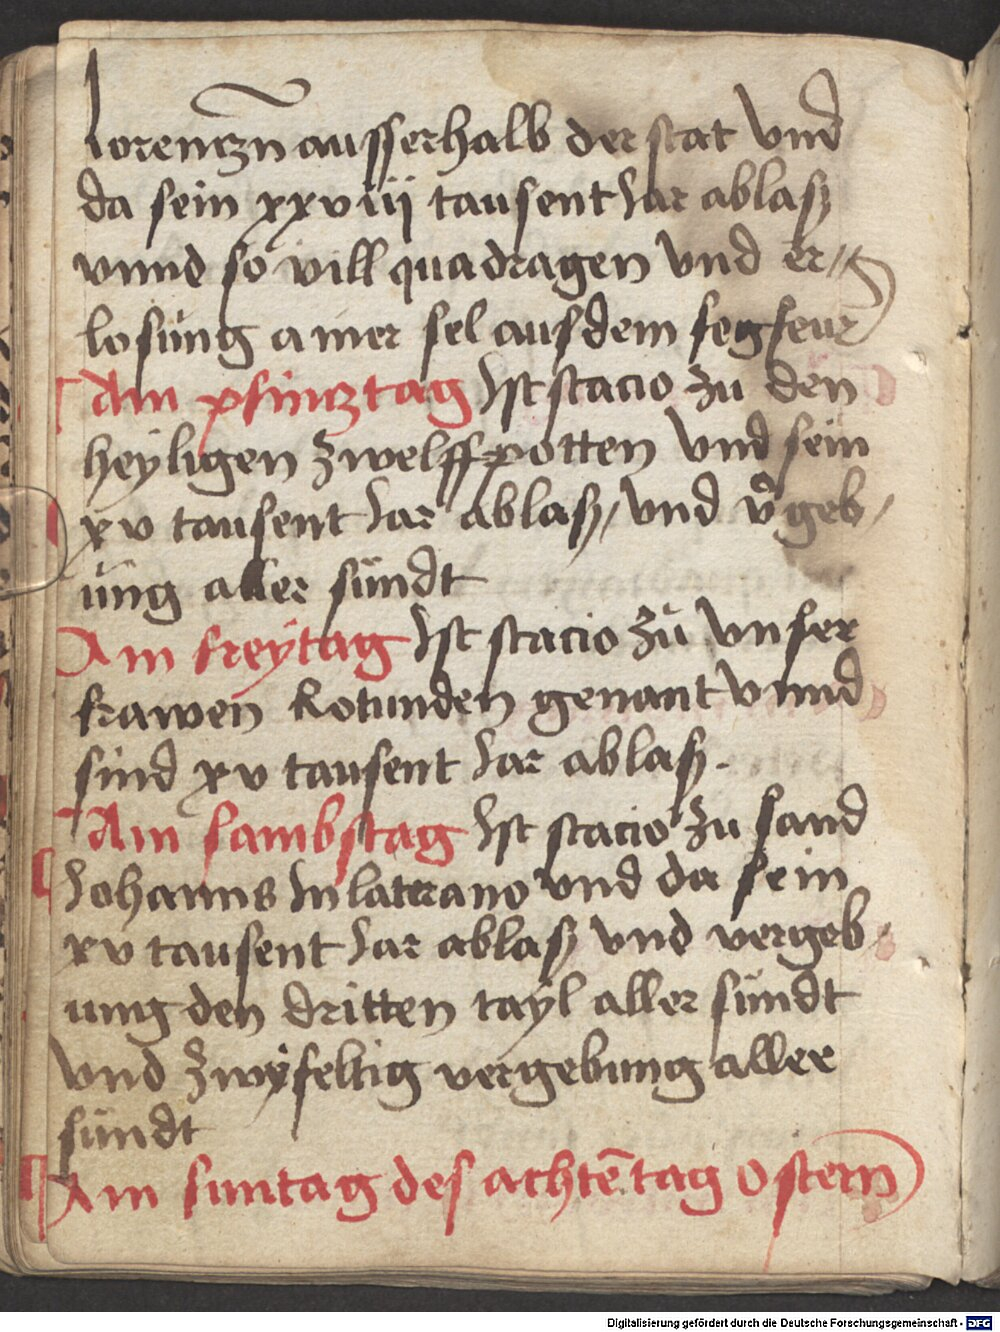 Lorenczn ausserhalb der stat vnd
da sein xxviii tausent Jar ablasz
vnnd so vill quadragen vnd er//
losung ainer sel aus dem fegfeur
Am pfincztag Ist stacio zu den
heyligen zwelffpotten vnd sein
xv tausent Jar ablasz/ vnd v͛geb/
ung aller sündt
Am freytag Ist stacio zu vnser
frawen Rotunden genant vnnd
sind xv tausent Jar ablasz.
Am sambstag Ist stacio zu sand
Johanns In latterano vnd da sein
xv tausent Jar ablasz vnd vergeb/
ung den dritten tayl aller sündt
vnd zwyfeltig vergebung aller
sündt
Am suntag des achtē tag Ostern
Digitalisierung gefördert durch die Deutsche Forschungsgemeinschaft - DFG